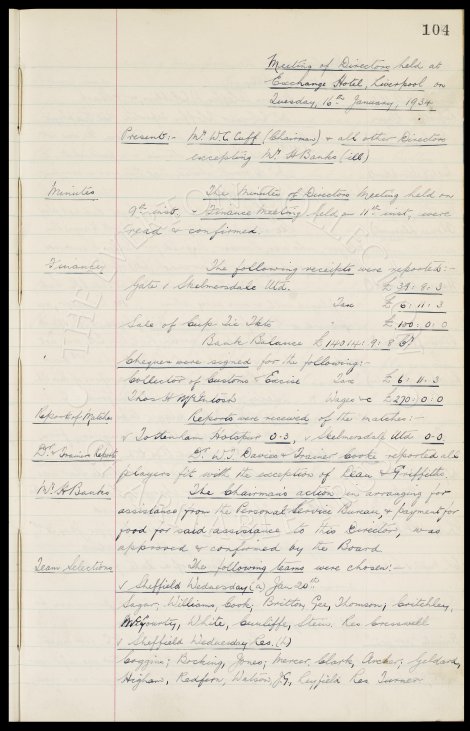 104
Meeting of Directors held at
Exchange Hotel, Liverpool on
Tuesday, 16th January, 1934
Present:- Mr. W.C. Cuff (Chairman) & all other Directors
excepting Mr. H Banks (ill)
Minutes The Minutes of Directors Meeting held on
9th inst. & Finance Meeting held on 11th inst. were
read & confirmed.
Finance The following receipts were reported:-
Gate v Skelmersdale Utd. £ 39 : 9 : 3
Tax £ 6 : 11 : 3
Sale of Cup-Tie Tkts £ 100 : 0 : 0
Bank Balance £ 14014 : 9 : 8 Cr
Cheques were signed for the following:-
Collector of Customs & Excise Tax £ 6 : 11 : 3
Thos H McIntosh Wages &c £ 270 : 0 : 0
Report of Matches Reports were received of the matches:-
v Tottenham Hotspur 0-3, v Skelmersdale Utd 0-0
Dr. & Trainers Reports Dr. W.J. Davies & Trainer Cooke reported all
players fit with the exception of Dean & Griffiths.
Mr. H Banks The Chairman's action in arranging for
assistance from the Personal Service Bureau & payment for
food for said assistance to this Director, was
approved & confirmed by the Board.
Team Selections The following teams were chosen:-
v Sheffield Wednesday (a) Jan 20th
Sagar; Williams, Cook; Britton, Gee, Thomson; Critchley,
McGourty, White, Cunliffe, Stein. Res Cresswell
v Sheffield Wednesday Res. (h)
Coggins; Bocking, Jones; Mercer, Clark, Archer; Geldard,
Higham, Redfern, Watson J.G, Leyfield Res Turner